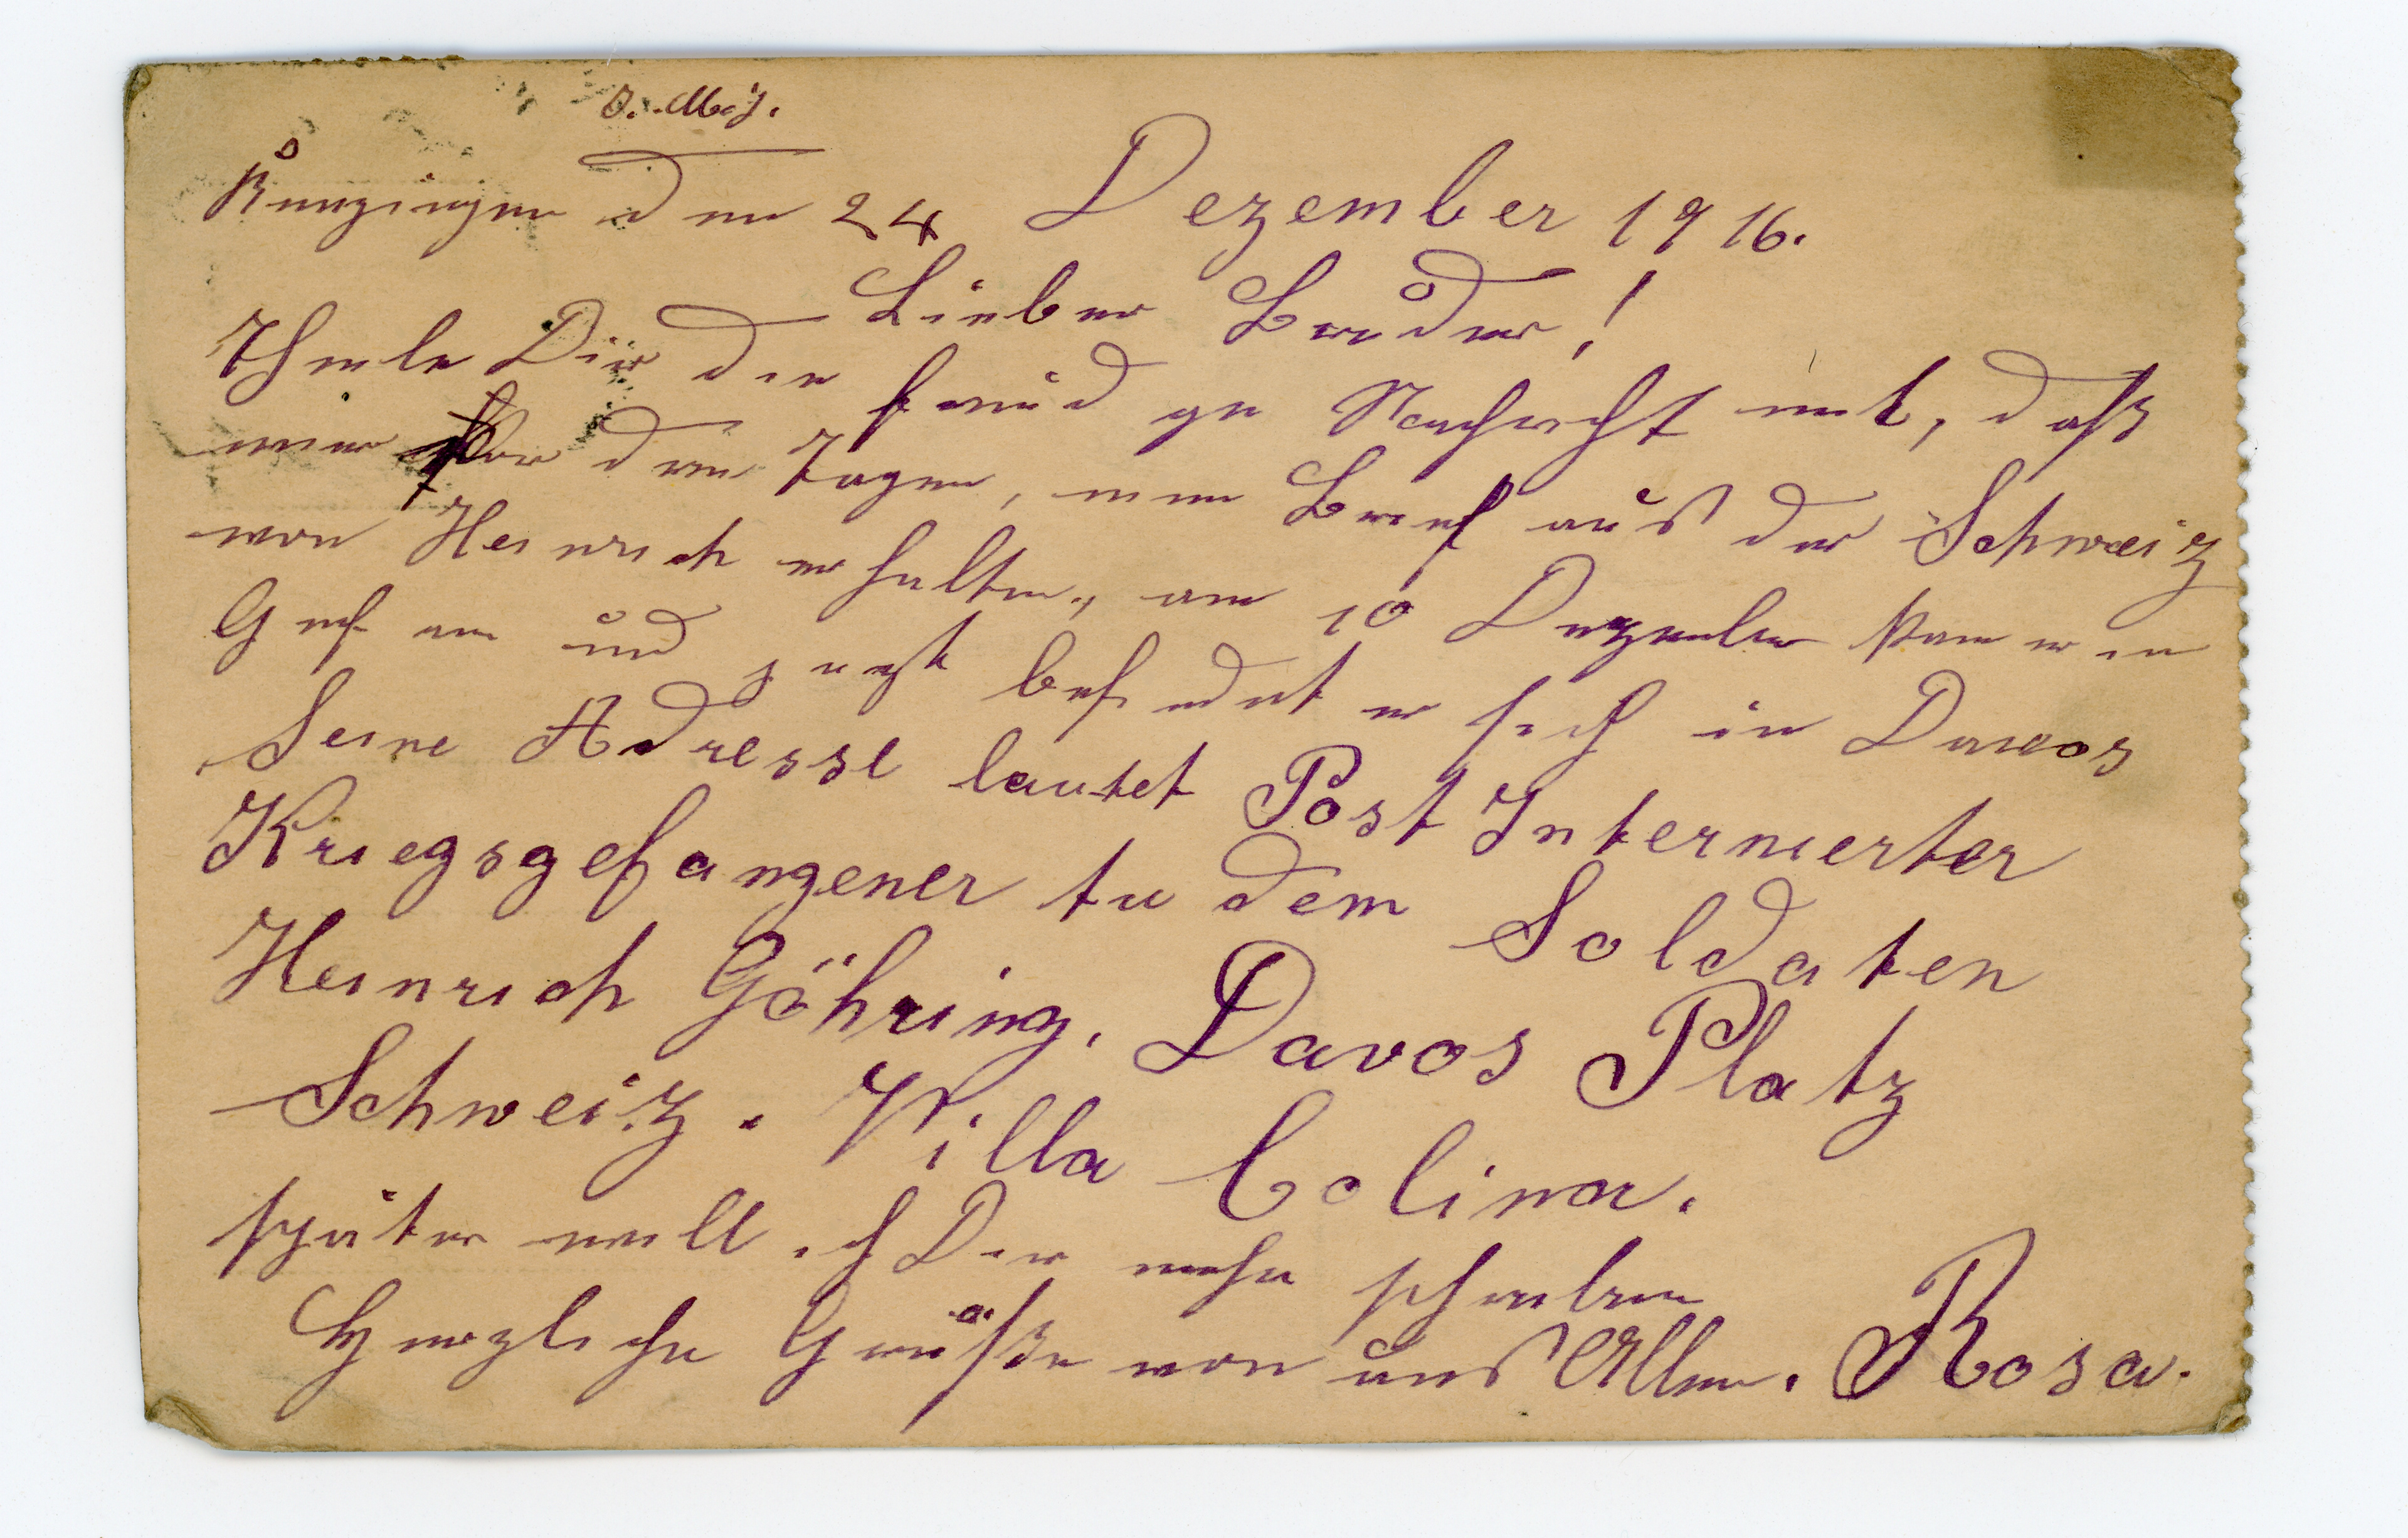 Kunzingen den 24 Dezember 1916.
Lieber Bruder!
Theile Dir die freudge Nachricht mit, daß
wir vor drei Tagen, einen Brief aus der Schweiz
von Heinrich erhalten, am 10 Dezember kam er in
Genf an und jezt befindet er sich in Davos
Seine Adresse lautet Post Internierter
Kriegsgefangener tu dem Soldaten
Heinrich Göhring, Davos Platz
Schweiz. Villa Colina.
später will ich Dir mehr schreiben
Herzliche Grüße von uns Allen. Rosa.